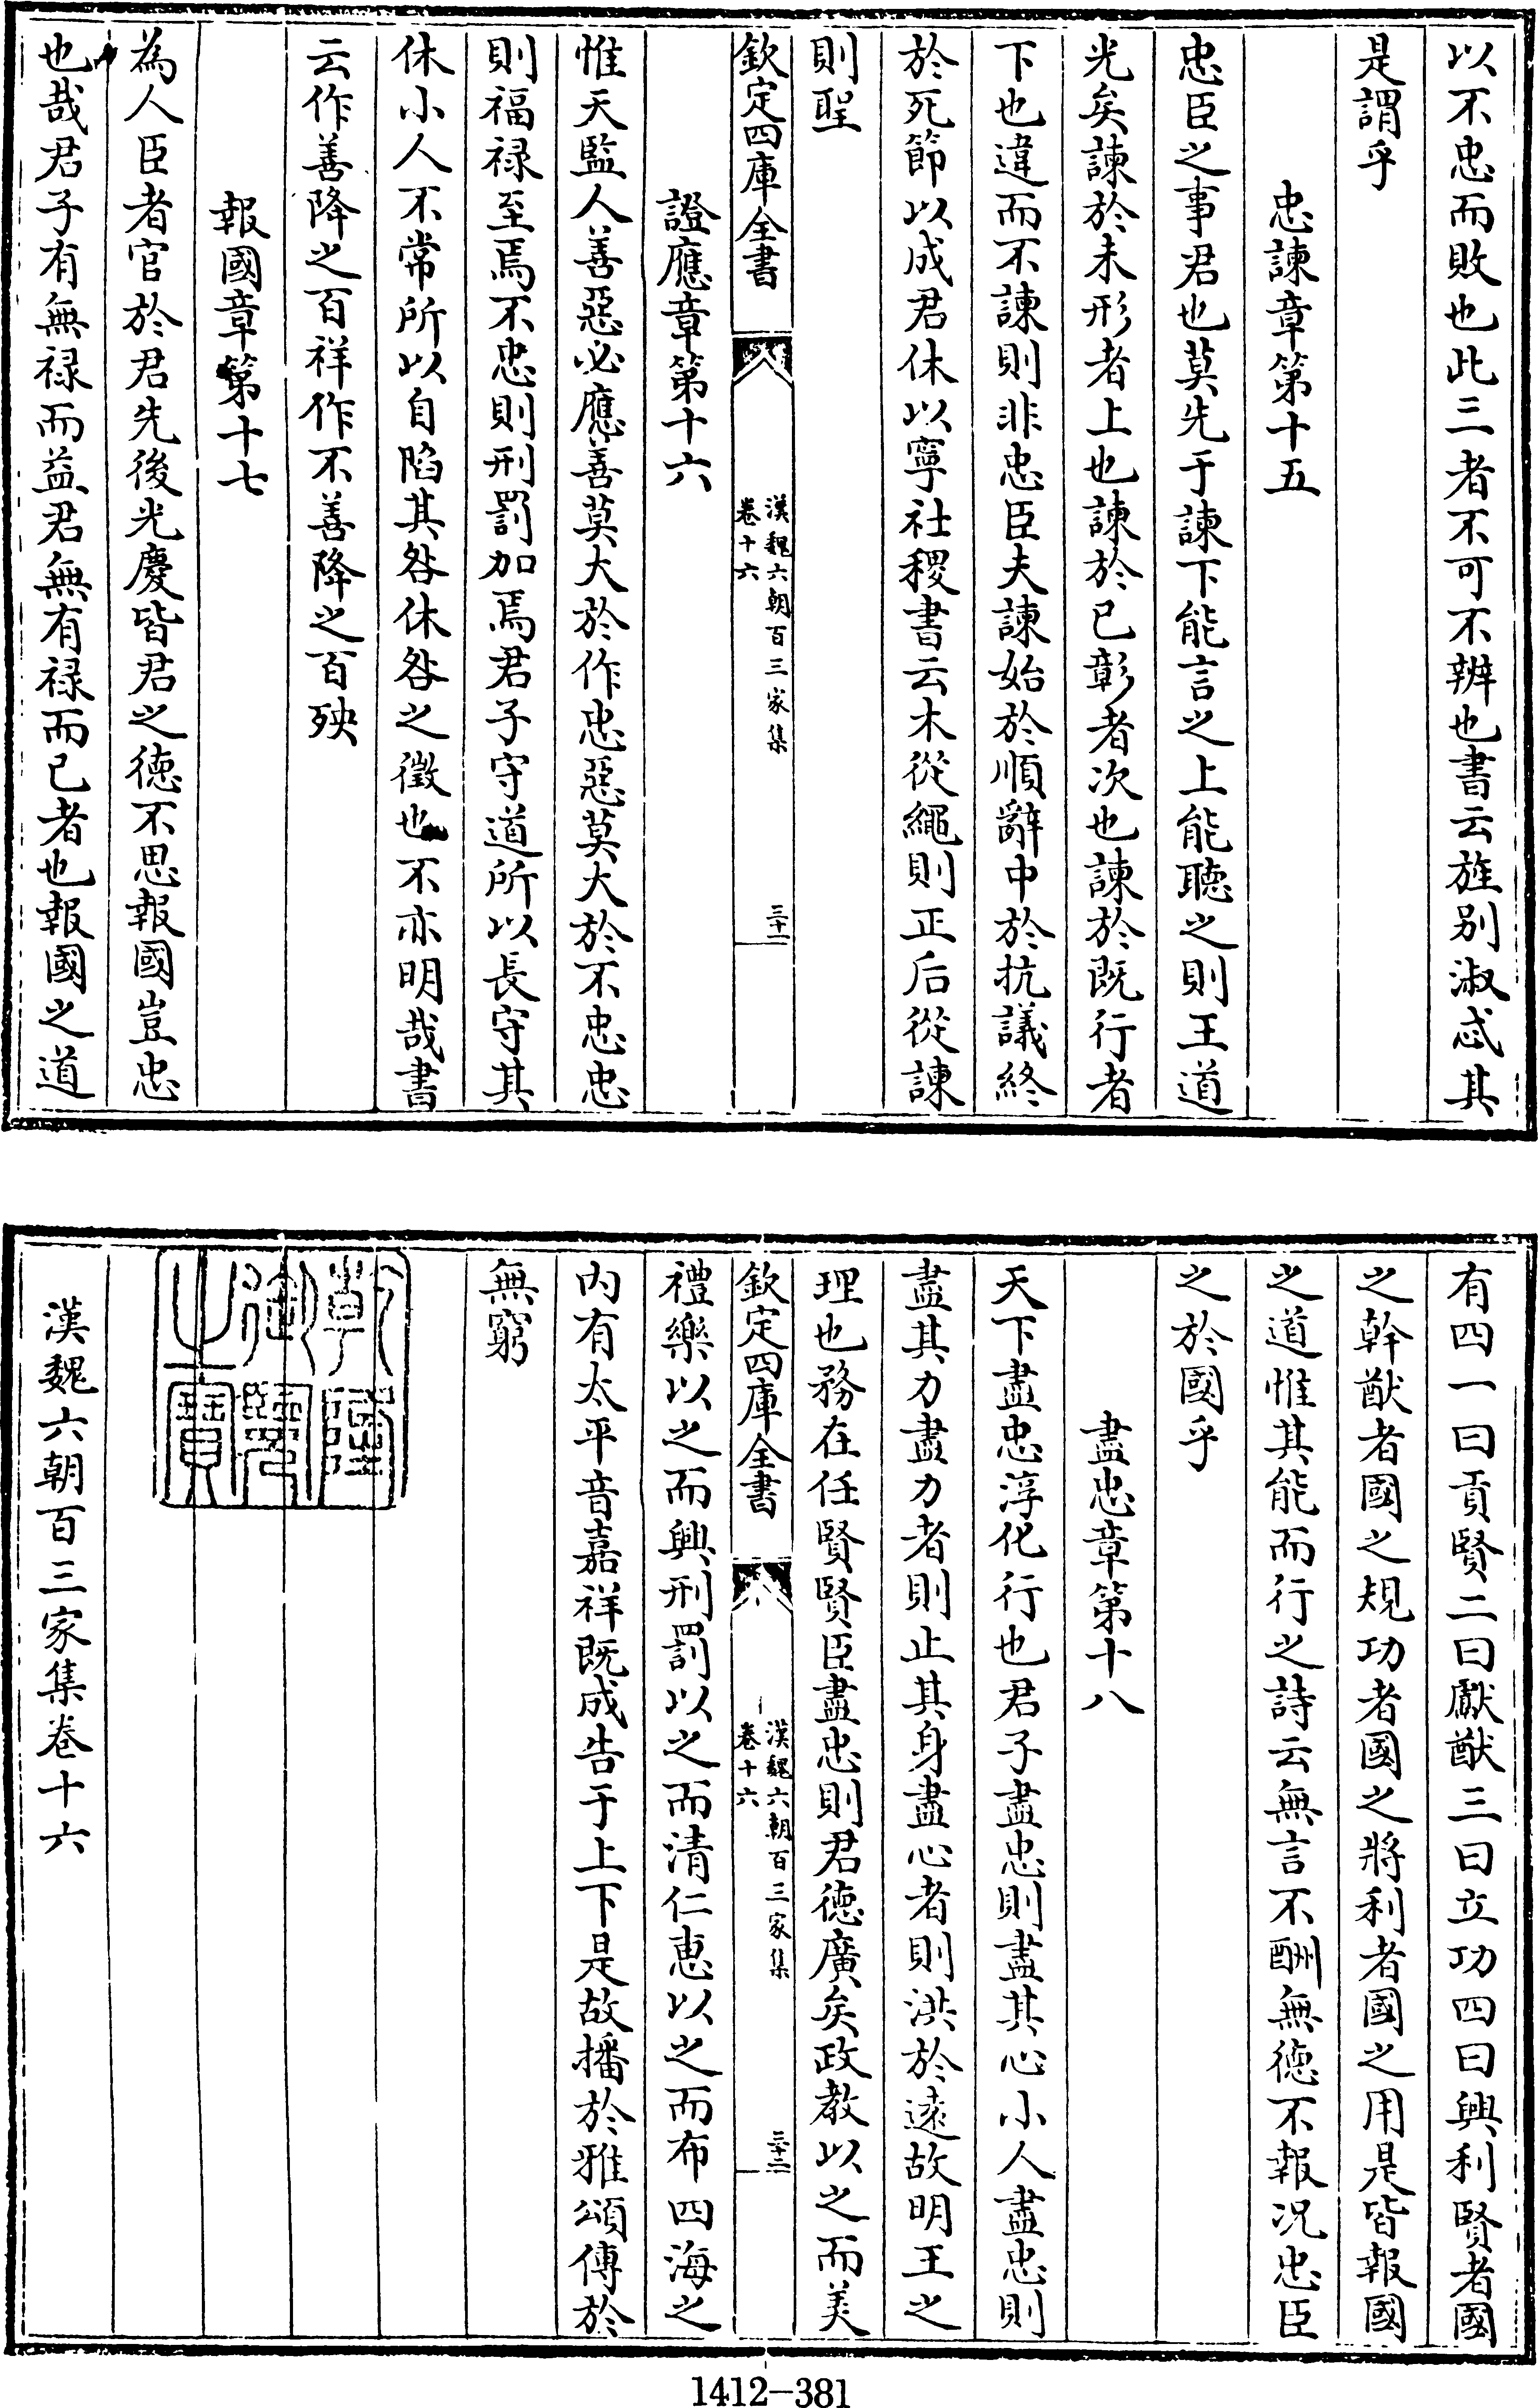 以不忠而敗也此三者不可不辨也書云旌别淑忒其
是謂乎
忠諫章第十五
忠臣之事君也莫先于諫下能言之上能聽之則王道
光矣諫於未形者上也諫於已彰者次也諫於既行者
下也違而不諫則非忠臣夫諫始於順辭中於抗議終
於死節以成君休以寧社稷書云木從繩則正后從諫
則聖
欽定四庫全書
漢魏六朝百三家集
卷十六
三十一
證應章第十六
惟天監人善惡必應善莫大於作忠惡莫大於不忠忠
則福禄至焉不忠則刑罰加焉君子守道所以長守其
休小人不常所以自陷其咎休咎之徵也不亦明哉書
云作善降之百祥作不善降之百殃
報國章第十七
為人臣者官於君先後光慶皆君之徳不思報國豈忠
也哉君子有無禄而益君無有禄而已者也報國之道
有四一曰貢賢二曰獻猷三曰立功四曰興利賢者國
之幹猷者國之規功者國之將利者國之用是皆報國
之道惟其能而行之詩云無言不酬無徳不報况忠臣
之於國乎
盡忠章第十八
天下盡忠淳化行也君子盡忠則盡其心小人盡忠則
盡其力盡力者則止其身盡心者則洪於遠故明王之
理也務在任賢賢臣盡忠則君徳廣矣政教以之而美
欽定四庫全書
漢魏六朝百三家集
卷十六
三十二
禮樂以之而興刑罰以之而清仁恵以之而布四海之
内有太平音嘉祥既成告于上下是故播於雅頌傳於
無窮
乾隆
御覽
之寶
漢魏六朝百三家集卷十六
1412-381